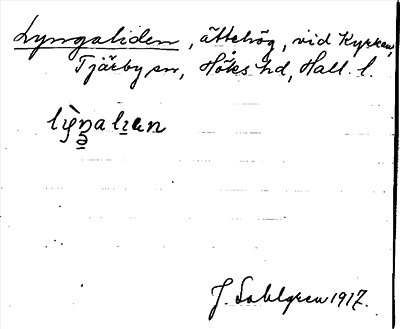 Lyngaliden, ättehög, vid Kyrkan,
Tjärby sn, Höks hd, Hall. l.
lỳŋalian
J. Sahlgren 1917.